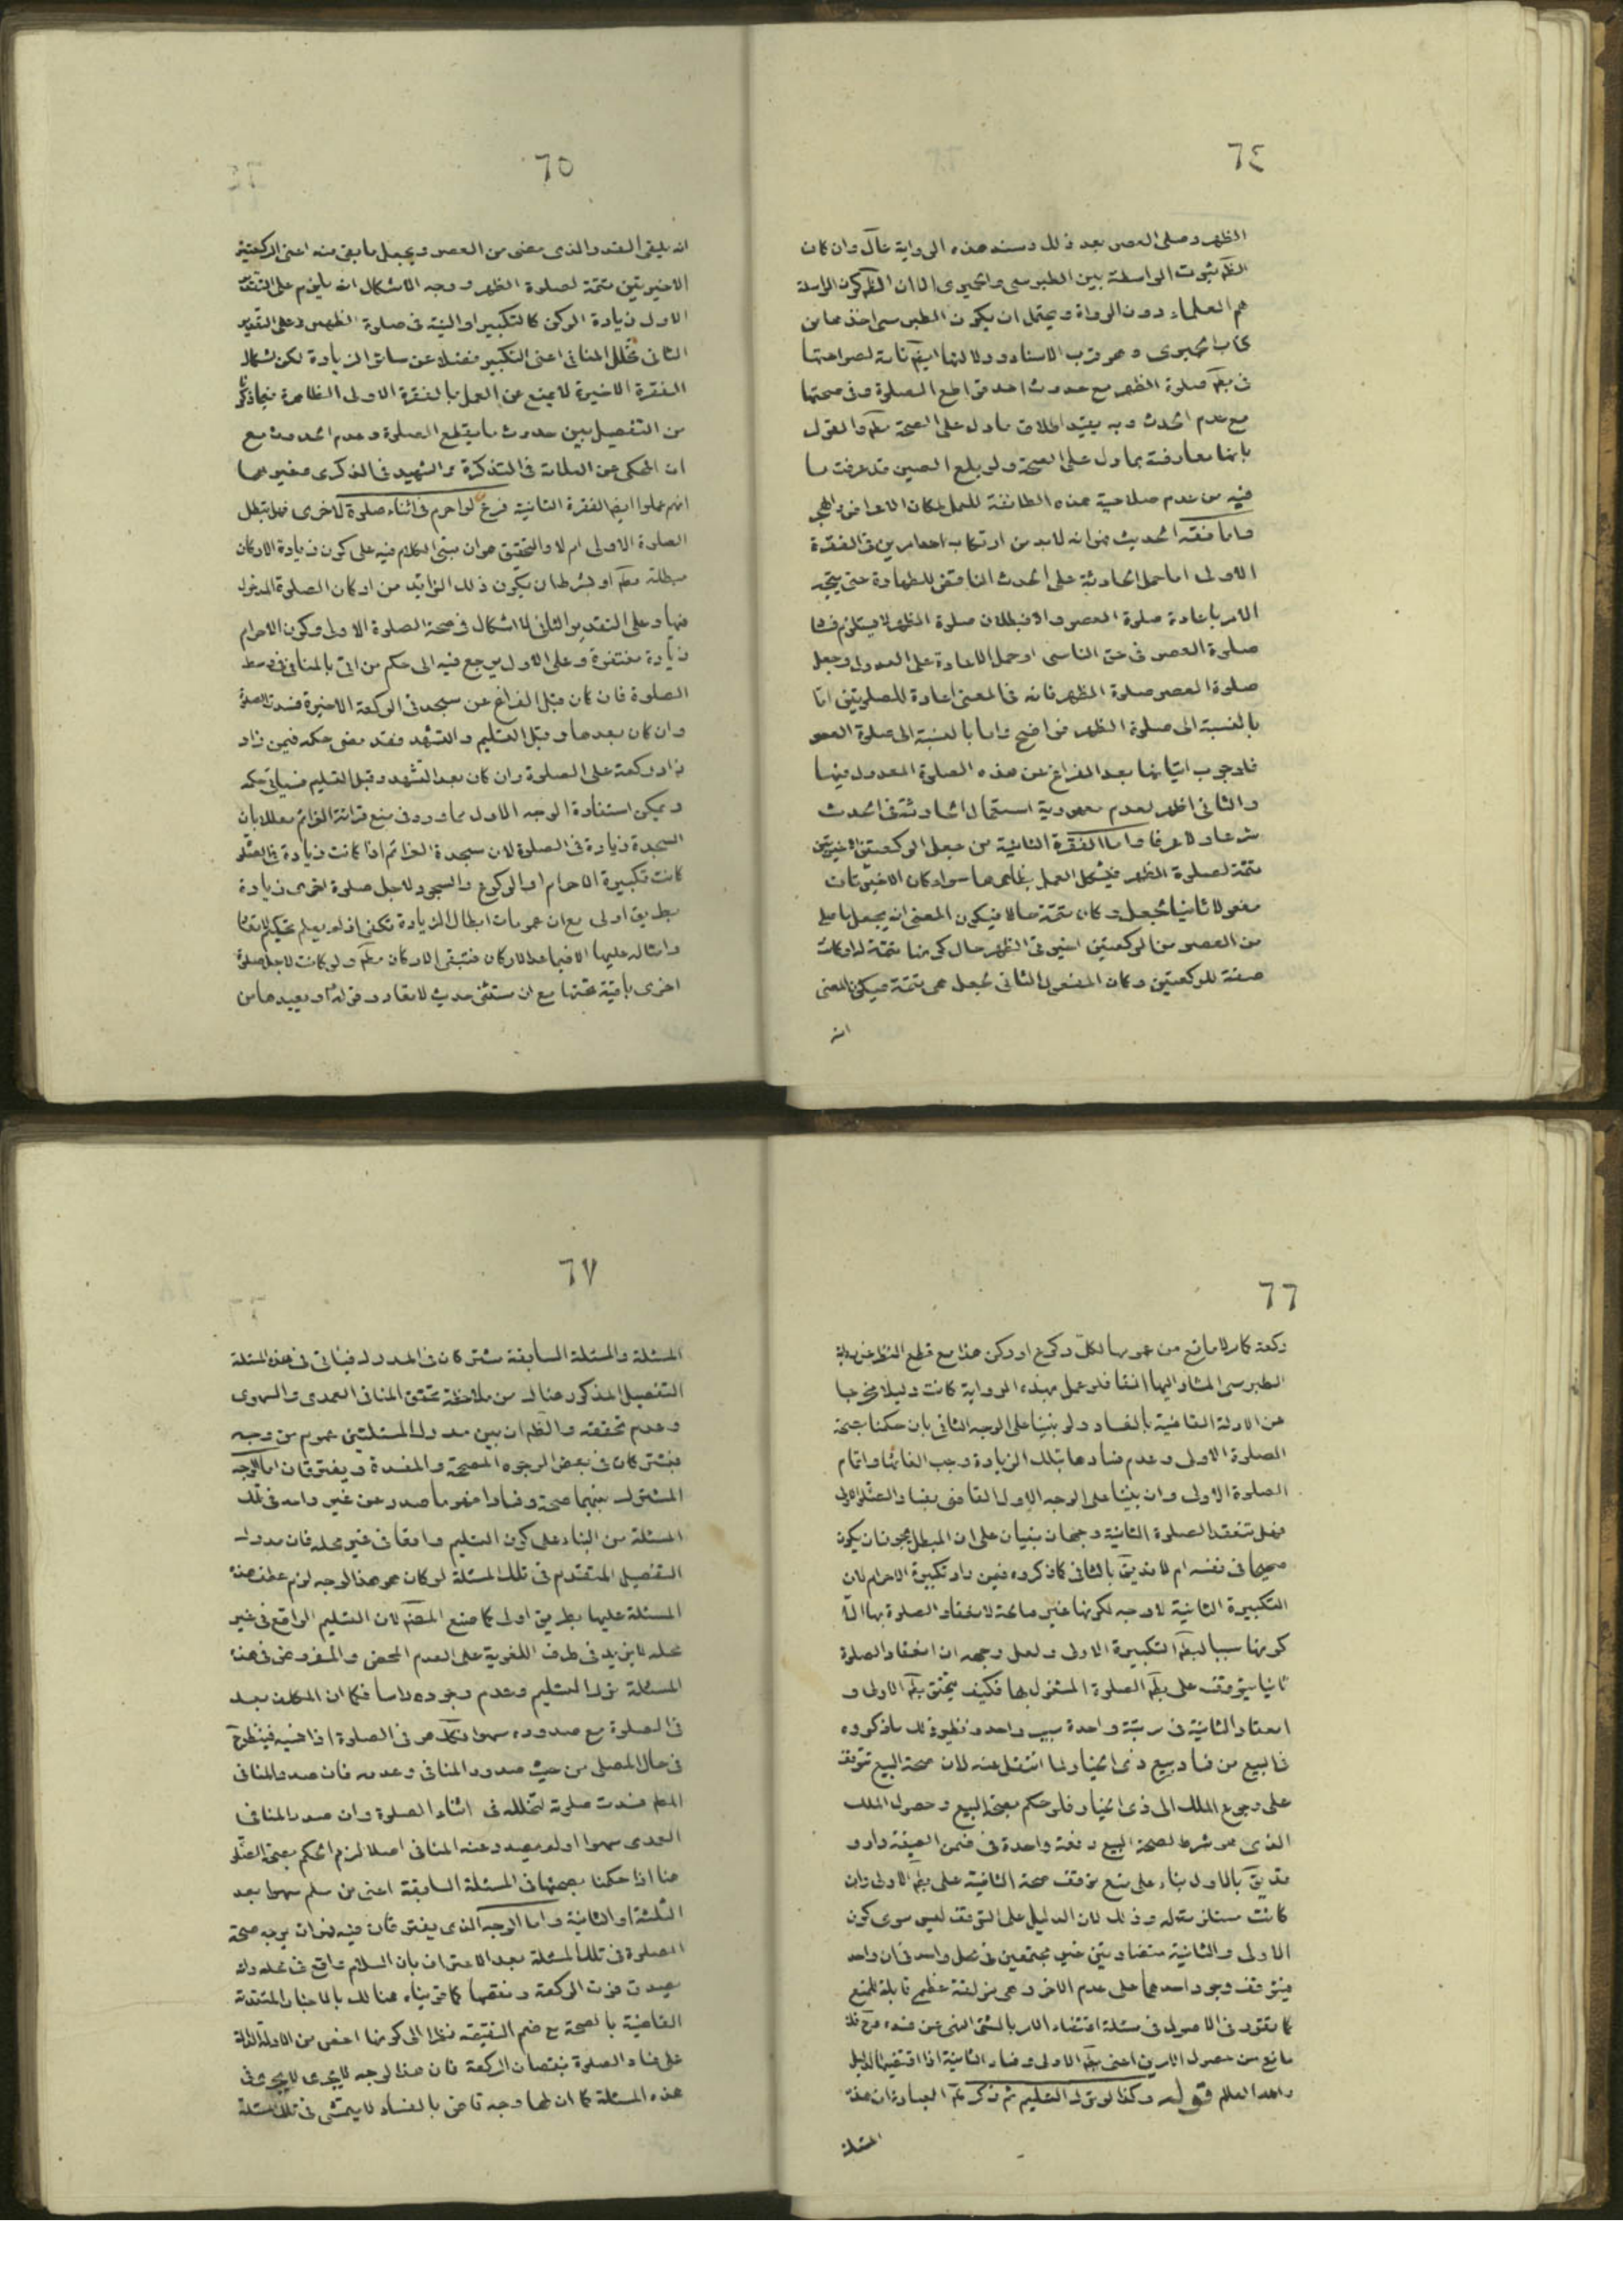 ٦٤
الظهر وصلى العصر بعد ذلك وسند هذه الرواية عال وان كان
الظ ثبوت الواسطة بين الطبرسى والحميرى الا ان الظ كون الواسطة
هم العلماء دون الرواة ويحتمل ان يكون الطبرسى اخذهما من
كتاب الحميرى وهو قرب الاسناد ودلالتها ايض تامة لصراحتها
فى بطلم صلوة الظهر مع حدوث احد قواطع الصلوة وفى صحتها
مع عدم الحدث وبه يقيد اطلاق مادل على الصحة مطم والقول
بانها معارضة بمادل على الصحة ولو بلغ الصين قد عرفت ما
فيه من عدم صلاحية هذه الطائفة للعمل لمكان الاعراض
واما فقه الحديث فهو انه لا بد من ارتكاب احد امرين فى الفقرة
الاولى اما حمل الحادثة على الحدث الناقض للطهارة حتى يتجه
الامر باعادة صلوة العصر والا فبطلان صلوة الظهر لا يستلزم فساد
صلوة العصر فى حق الناسى او حمل الاعادة على العدول وجعل
صلوة العصر صلوة الظهر فانه فى المعنى اعادة للصلوتين اما
بالنسبة الى صلوة الظهر فواضح واما بالنسبة الى صلوة العصر
فلوجوب اتيانها بعد الفراغ عن هذه الصلوة المعدول فيها
والثانى اظهر لعدم معهودية استعمال الحادثة فى الحدث
شرعا ولا عرفا واما الفقرة الثانية من جعل الركعتين الاخيرتين
تتمة لصلوة الظهر فيشكل العمل بظاهرها سواء كان الاخيرتان
مفعولا ثانيا لجعل وكان تتمة حالا فيكون المعنى انه يجعل ما صلى
من العصر من الركعتين اخيرتى الظهر حال كونهما تتمة له او كانت
صفة للركعتين وكان المفعول الثانى لجعل هى تتمة فيكون المعنى
انه
٦٥
انه يلقى القدر الذى مضى من العصر ويجعل ما بقى منه اعنى الركعتين
الاخيرتين تتمة لصلوة الظهر ووجه الاشكال انه يلزم على التقدير
الاول زيادة الركن كالتكبير او النية فى صلوة الظهر وعلى التقدير
الثانى تخلل المنافى اعنى التكبير فضلا عن سائر الزيادة لكن اشكال
الفقرة الاخيرة لا يمنع عن العمل بالفقرة الاولى الظاهرة فيما ذكرنا
من التفصيل بين حدوث ما يقطع الصلوة وعدم الحدوث مع
ان المحكى عن العلامة فى التذكرة والشهيد فى الذكرى وغيرهما
انهم عملوا ايض بالفقرة الثانية فرع لو احرم فى اثناء صلوة لاخرى فهل تبطل
الصلوة الاولى ام لا والتحقيق هو ان مبنى الكلام فيه على كون زيادة الاركان
مبطلة مطم او بشرط ان يكون ذلك الزائد من اركان الصلوة المدخول
فيها وعلى التقدير الثانى لا اشكال فى صحة الصلوة الاولى وكون الاحرام
زيادة مغتفرة وعلى الاول يرجع فيه الى حكم من اتى بالمنافى فى وسط
الصلوة فان كان قبل الفراغ عن سجدتى الركعة الاخيرة فسدت الصلوة
وان كان بعدها وقبل التسليم والتشهد فقد مضى حكمه فيمن زاد
زاد ركعة على الصلوة وان كان بعد التشهد وقبل التسليم فسيأتى حكمه
ويمكن استفادة الوجه الاول مما ورد فى منع قرائة العزائم معللا بان
السجدة زيادة فى الصلوة لان سجدة العزائم اذا كانت زيادة فى الصلوة
كانت تكبيرة الاحرام او الركوع والسجود لاجل صلوة اخرى زيادة
بطريق اولى مع ان عمومات ابطال الزيادة تكفى اذ لم يعلم تحكيم لا تعاد
وامثاله عليها الا فيما عدا الاركان فتبقى الاركان مطم ولو كانت لاجل صلوة
اخرى باقية تحتها مع ان مستثنى حديث لا تعاد وقوله او يعيدها من
٦٦
ركعة كاملا مانع من عمومها لكل ركوع او ركن هذا مع قطع النظر عن رواية
الطبرسى المشار اليها انفا فلو عمل بهذه الرواية كانت دليلا مخرجا
عن الادلة القاضية بالفساد ولو بنينا على الوجه الثانى بان حكمنا بصحة
الصلوة الاولى وعدم فسادها بتلك الزيادة وجب الغائها واتمام
الصلوة الاولى وان بنينا على الوجه الاول القاضى بفساد الصلوة الاولى
فهل تنعقد الصلوة الثانية وجهان مبنيان على ان المبطل يجوز ان يكون
صحيحا فى نفسه ام لا فديق بالثانى كما ذكروه فيمن زاد تكبيرة الاحرام لان
التكبيرة الثانية لا وجه لكونها غير صالحة لانعقاد الصلوة بها الا
كونها سببا لبطم التكبيرة الاولى ولعل وجهه ان انعقاد الصلوة
ثانيا يتوقف على بطم الصلوة المشغول بها فكيف يتحقق بطم الاولى و
انعقاد الثانية فى رتبة واحدة بسبب واحد ونظير ذلك ما ذكروه
فى البيع من فساد بيع ذى الخيار لما انتقل عنه لان صحة البيع تتوقف
على رجوع الملك الى ذى الخيار فلو حكم بصحة البيع وحصول الملك
الذى هو شرط لصحة البيع دفعة واحدة فى ضمن الصيغة دار و
قد يق بالاول بناء على منع توقف صحة الثانية على بطم الاولى وان
كانت مستلزمة له وذلك لان الدليل على التوقف ليس سوى كون
الاولى والثانية متضادتين غير مجتمعين فى محل واحد فى ان واحد
فيتوقف وجود احدهما على عدم الاخر وهى مزلقة عظيم قابلة للمنع
كما تقرر فى الاصول فى مسئلة اقتضاء الامر بالشئ النهى عن ضده فلا
مانع من حصول الامرين اعنى بطم الاولى وفساد الثانية اذا اقتضيهما الدليل
والله العالم قوله وكذا لو ترك التسليم ثم ذكر ظ العبارة ان هذه
المسئلة
٦٧
المسئلة والمسئلة السابقة مشتركان فى المدرك فيأتى فى هذه المسئلة
التفصيل المذكور هناك من ملاحظة تحقق المنافى العمدى والسهوى
وعدم تحققه والظ ان بين مدرك المسئلتين عموم من وجه
فيشتركان فى بعض الوجوه المصححة والمفسدة ويفترقان اما الوجه
المشترك بينهما صحة وفسادا فهو ما صدر عن غير واحد فى تلك
المسئلة من البناء على كون التسليم واقعا فى غير محله فان مدرك
التفصيل المتقدم فى تلك المسئلة لو كان هو هذا الوجه لزم عطف هذه
المسئلة عليها بطريق اولى كما صنع المصم لان التسليم الواقع فى غير
محله لا يزيد فى طرف اللغوية على العدم المحض والمفروض فى هذه
المسئلة ترك التسليم وعدم وجوده راسا فكما ان المكلف بعد
فى الصلوة مع صدوره سهوا فكك هو فى الصلوة اذا نسيه فينظر ح
فى حال المصلى من حيث صدور المنافى وعدمه فان صدر المنافى
المطم فسدت صلوته لتخلله فى اثناء الصلوة وان صدر المنافى
العمدى سهوا او لم يصدر عنه المنافى اصلا لزم الحكم بصحة الصلوة
هنا اذا حكمنا بصحتها فى المسئلة السابقة اعنى من سلم سهوا بعد
الثلثة او الثانية واما الوجه الذى يفترقان فيه فهو ان يوجه صحة
الصلوة فى تلك المسئلة بعد الاعتراف بان السلام واقع فى محله وانه
يصدق فوت الركعة ونقصها كما هو بناء هنالك بالاخبار المتقدمة
القاضية بالصحة مع ضم النقيصة نظرا الى كونها اخص من الادلة الدالة
على فساد الصلوة بنقصان الركعة فان هذا الوجه لا يجرى فى
هذه المسئلة كما ان لها وجه قاض بالفساد لا يتمشى فى تلك المسئلة